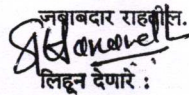 जबाबदार राहतील.
लिहून देणारे :